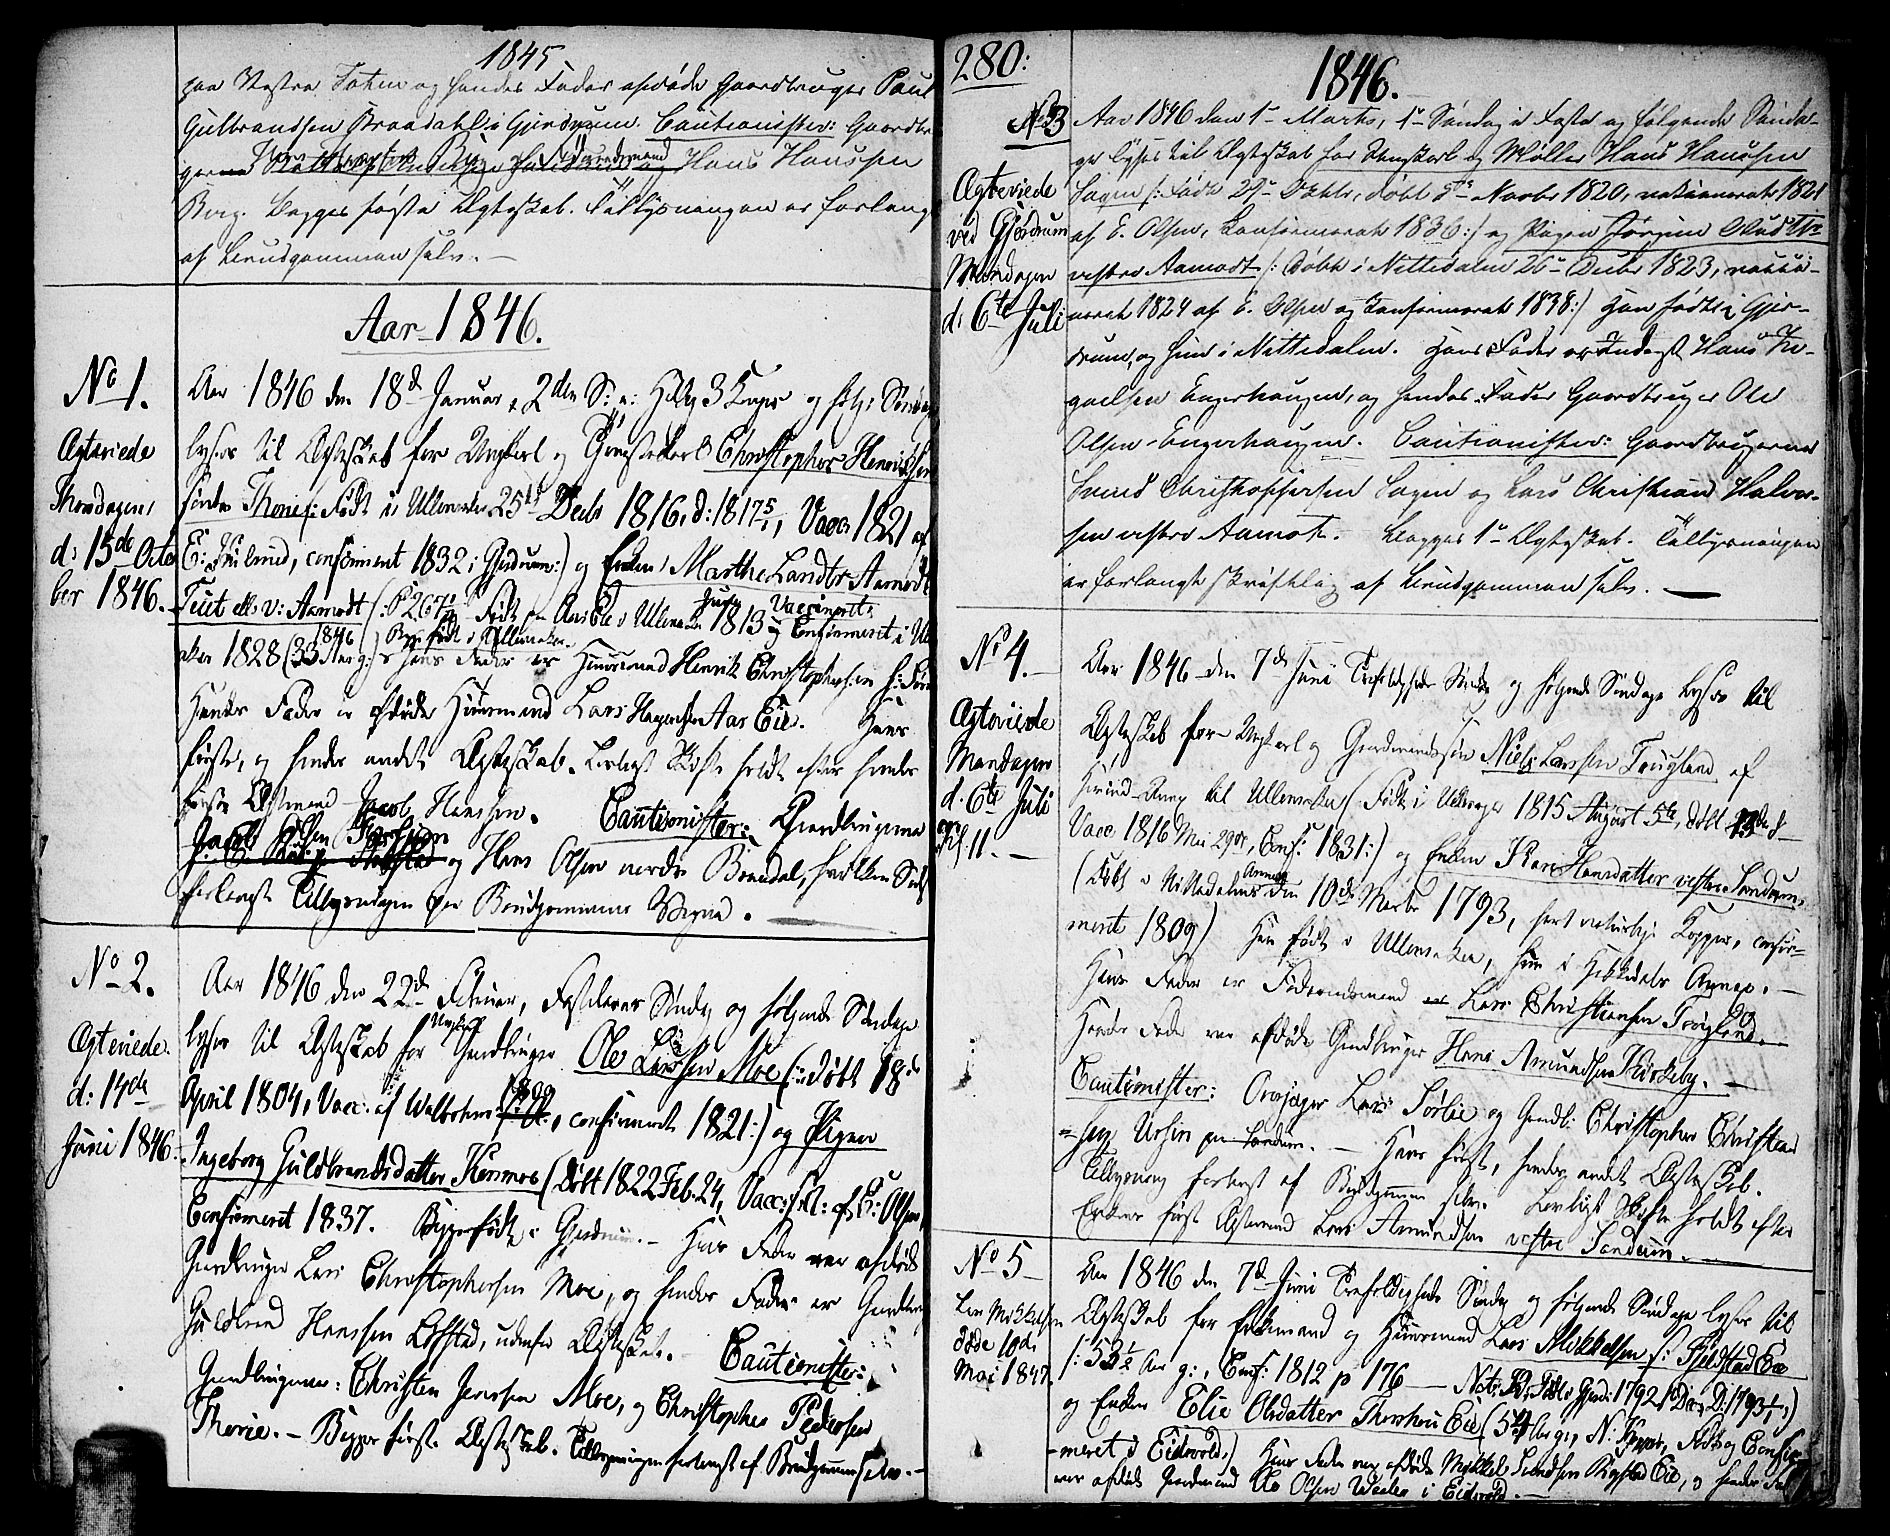 1845
paa Vestre Toten og hendes Fader afdøde Gaardbruger Paul
Gulbrandsen Braadahl i Gjerdrum. Cautionister: Gaardbru-
gerne Hans Hanssen
Berg. Begges første Ægteskab. Tillysningen er forlangt
af Brudgommen selv.
Aar 1846.
No 1.
Ægteviede
Thorsdagen
d: 15de Octo
ber 1846.
Aar 1846 den 18de Januar, 2den S: e: H: 3 Konger og følg: Søndage
lyses til Ægteskab for Ungkarl og Christopher Henriksen
søndre Thorie (: Født i Ullensaker 25de Decbr 1816, d: 1817 5/1, Vacc 1821 af
E: confirmeret 1832 i Gjerdrum:) og Enken Marthe Larsdtr Aamodt
Tuet ell. v: Aamodt (: P 267 Født paa Aas Eie i Ullensaker 1813 Vaccineret og Confirmeret i Ul-
aker 1828 (33 Aar g:) Begge født i Ullensaker. Hans Fader er Huusmand Henrik Christophersen
Hendes Fader er afdøde Huusmand Lars Hagensen Aas Eie. Hans
første, og hendes andet Ægteskab. Lovligt Skifte holdt efter hendes
første Ægtemand Jacob Hanssen. Cautionister: Gaardbrugerne
og Hans Olsen nordre Brændal, hvilken
forlangt Tillysningen paa Brudgommens Vegne.
No 2.
Ægteviede
d: 14de
Juni 1846.
Aar 1846 den 22de Februar, Fastelavns Søndag og følgende Søndage
lyses til Ægteskab for Ungkarl Gaardbruger Ole Larssen Moe (: døbt 18de
April 1804, Vacc. af Walstrøm 1809, confirmeret 1821:) og Pigen
Ingeborg Guldbrandsdatter Kinmoe (Døbt 1822 Feb. 24, Vacc: af E: Olsen,
Confirmeret 1837. Begge født i Gjerdrum. Hans Fader var afdøde
Gaardbruger Lars Christophersen Moe, og hendes Fader er Gaardbru
Guldbrand Hanssen udenfor Ægteskab. Cautionister:
Gaardbrugerne: Christen Jenssen Moe, og Christopher Pedersen
Thorie. Begges første Ægteskab. Tillysningen forlangt af Brudgommen selv.
280:
1846.
No 3
Ægteviede
ved Gjerdrum
Mandagen
d: 6te Juli
Aar 1846 den 1ste Marts, 1ste Søndag i Faste og følgende Sønda-
ger lyses til Ægteskab for Ungkarl og Møller Hans Hanssen
Sagen (: Født 29de Octbr, døbt 5te Novbr 1820, vaccineret 1821
af E. Olsen, Confirmeret 1836:) og Pigen Jørgine Olsdtr
vestre Aamodt (: Døbt i Nittedalen 26de Decbr 1823, vacci-
neret 1824 af E. Olsen og Confirmeret 1838:) Han født i Gjer-
drum, og hun i Nittedalen. Hans Fader er Inderst Hans In-
gvelsen Engerhaugen, og hendes Fader Gaardbruger Ole
Olsen Engerhaugen. Cautionister: Gaardbrugerne
Svend Christophersen Sagen og Lars Christian Halvor-
sen vestre Aamot. Begges 1ste Ægteskab. Tillysningen
er forlangt skriftlig af Brudgommen selv.
No 4.
Ægteviede
Mandagen
d. 6te Juli
Kl. 11.
Aar 1846 den 7de Juni Trefoldigheds Søndag og følgende Søndage lyses til
Ægteskab for Ungkarl og Gaardmandssøn Niels Larssen Trugland af
Hovind Annex til Ullensaker (Født i Ullensager 1815 August 5te, døbt 13de
Vacc 1816 Mai 29de, Conf: 1831:) og Enken Kari Hansdatter vestre Sandum
(Døbt i Nittedalens Annex den 10de Marts 1793, havt naturlige Kopper, confir-
meret 1809) Han født i Ullensaker, hun i Hakkedals Annex.
Hans Fader er Føderaadsmand Lars Christiansen Trøgland.
Hendes Fader var afdøde Gaardbruger Hans Amundsen Kirkeby.
Cautionister: Overjæger Lars Sørlie og Gaardb: Christopher Christian
Ursin paa Sandum. Hans første, hendes andet Ægteskab.
Tillysning forlangt af Brudgommen selv. Lovligt Skifte holdt efter
Enkens første Ægtemand Lars Amundsen vestre Sandum.
No 5
Lars Mikkelsen
døde 10de
Mai 1847.
Aar 1846 den 7de Juni Trefoldigheds Søndag og følgende Søndage lyses til
Ægteskab for Enkemand og Huusmand Lars Mikkelsen (: Kjelstad Eie
(: 53 1/2 Aar g:, Conf: 1812 p 176 Not: Født i Gjerd: 1792 D: 1793 1/1:)
og Enken Elie Olsdatter Thorshou Eie (54 Aar g:, N: Kopper, Født og Confir-
meret i Eidsvold:) Hans Fader var afdøde Mikkel Svendsen Kogstad Eie, og hendes Fad
var afdøde Gaardmand Ole Olsen i Eidsvold.